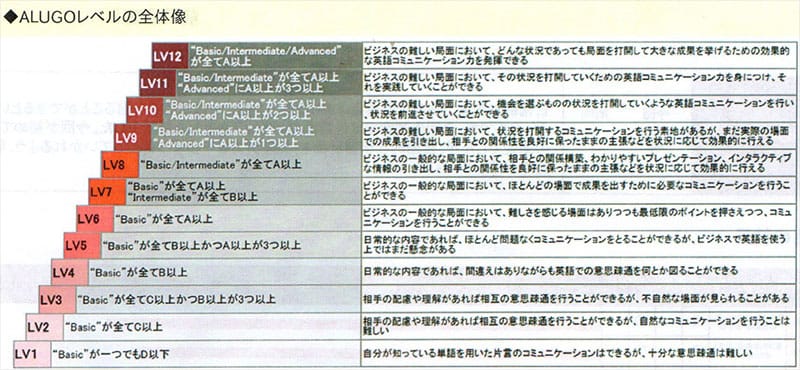 ◆ALUGOレベルの全体像
LV12
“Basic/Intermediate/Advanced”
が全てA以上
ビジネスの難しい局面において、どんな状況であっても局面を打開して大きな成果を挙げるための効果的
な英語コミュニケーション力を発揮できる
LV11
“Basic/Intermediate”が全てA以上
“Advanced”にA以上が3つ以上
ビジネスの難しい局面において、その状況を打開していくための英語コミュニケーション力を身につけ、そ
れを実践していくことができる
LV10
“Basic/Intermediate”が全てA以上
“Advanced”にA以上が2つ以上
ビジネスの難しい局面において、機会を選ぶものの状況を打開していくような英語コミュニケーションを行い
、状況を前進させていくことができる
LV9
“Basic/Intermediate”が全てA以上
“Advanced”にA以上が1つ以上
ビジネスの難しい局面において、状況を打開するコミュニケーションを行う素地があるが、まだ実際の場面
での成果を引き出し、相手との関係性を良好に保ったままの主張などを状況に応じて効果的に行える
LV8
“Basic/Intermediate”が全てA以上
ビジネスの一般的な局面において、相手との関係構築、わかりやすいプレゼンテーション、インタラクティブ
な情報の引き出し、相手との関係性を良好に保ったままの主張などを状況に応じて効果的に行える
LV7
“Basic”が全てA以上
“Intermediate”が全てB以上
ビジネスの一般的な局面において、ほとんどの場面で成果を出すために必要なコミュニケーションを行うこ
とができる
LV6
“Basic”が全てA以上
ビジネスの一般的な局面において、難しさを感じる場面はありつつも最低限のポイントを押さえつつ、コミュ
ニケーションを行うことができる
LV5
“Basic”が全てB以上かつA以上が3つ以上
日常的な内容であれば、ほとんど問題なくコミュニケーションをとることができるが、ビジネスで英語を使う
上ではまだ懸念がある
LV4
“Basic”が全てB以上
日常的な内容において、間違えはありながらも英語での意思疎通を何とか図ることができる
LV3
“Basic”が全てC以上かつBが3つ以上
相手の配慮や理解があれば相互の意思疎通を行うことができるが、不自然な場面が見られることがある
LV2
“Basic”が全てC以上
相手の配慮や理解があれば相互の意思疎通を行うことができるが、自然なコミュニケーションを行うことは
難しい
LV1
“Basic”が一つでもD以下
自分が知っている単語を用いた片言のコミュニケーションはできるが、十分な意思疎通は難しい